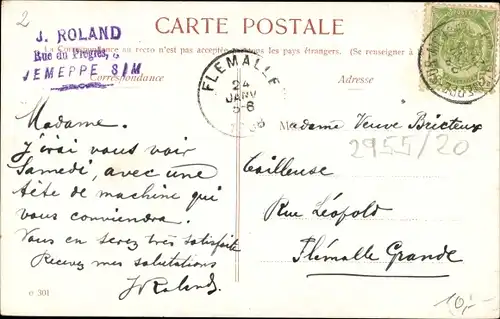 2
CARTE POSTALE
La Correspondance au recto n'est pas acceptée dans tous les pays étrangers. (Se renseigner à
J. ROLAND
Rue du Progrès,
JEMEPPE S/M
Correspondance
Adresse
FLEMALLE
24
JANV
Madame.
J'irai vous voir
Samedi, avec une
tête de machine qui
vous conviendra.
Vous en serez très satisfaite
Recevez mes salutations
J Roland
Madame Veuve Bricteux
2955/20
Tailleuse
Rue Léopold
Flémalle Grande
o 301
10,-